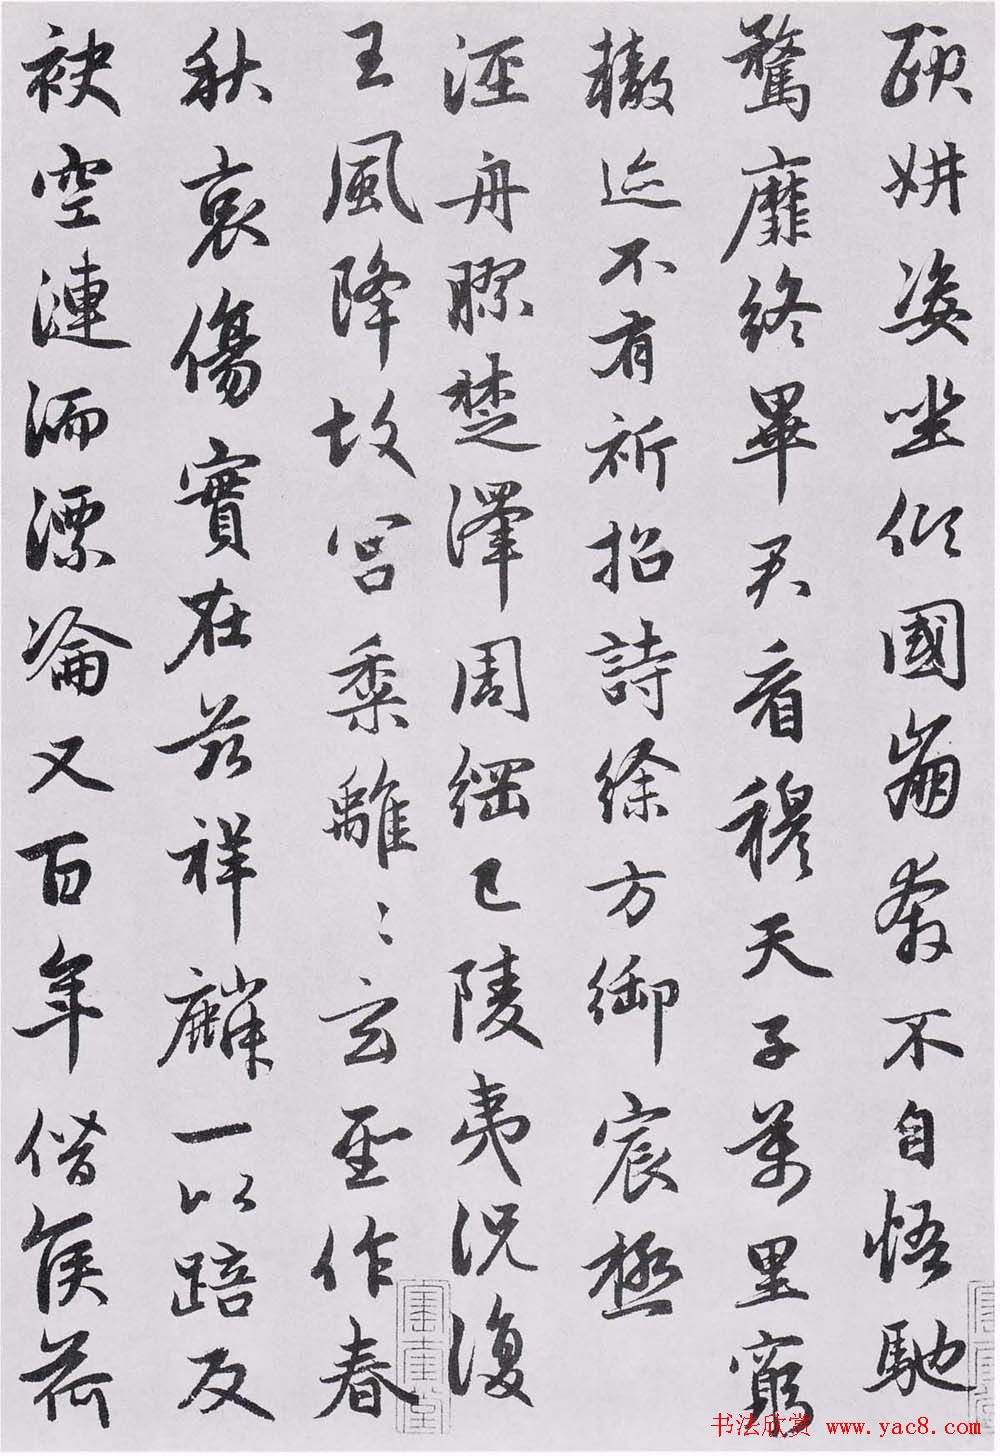 頤姸姿坐傾國崩奔不自悟馳
騖靡終畢君看穆天子萬里窮
轍迹不有祈招詩徐方御宸極
涇舟膠楚澤周綱已陵夷況復
王風降故宮黍離〻玄聖作春
秋哀傷實在兹祥麟一以踣反
袂空漣洏漂淪又百年僭侯荷
书法欣赏 www.yac8.com